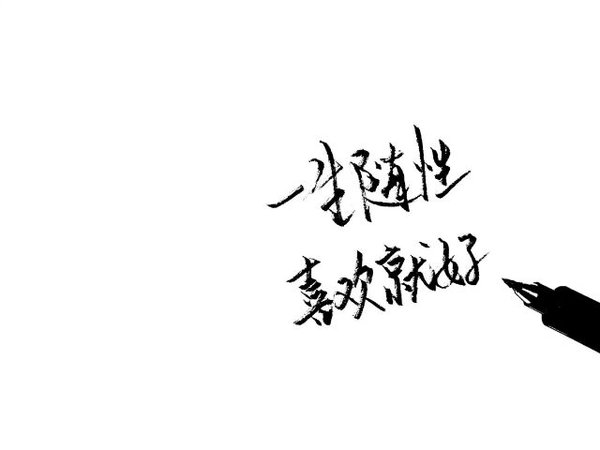 一生随性
喜欢就好